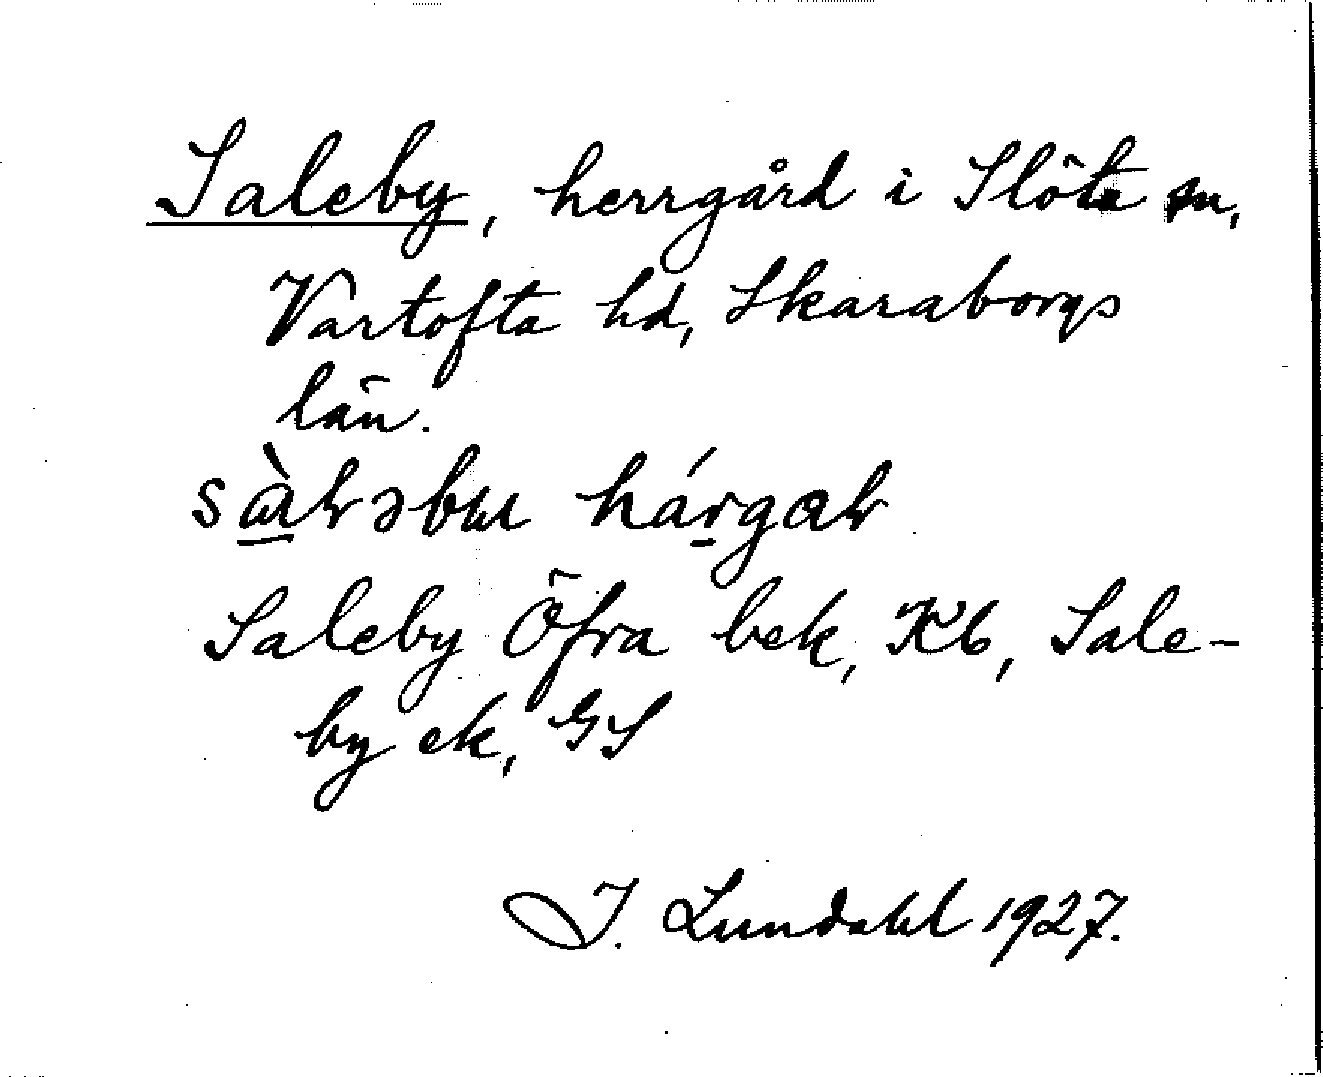 Saleby, herrgård i Slöta sn,
Vartofta hd, Skaraborgs
län.
Saleby Öfra bek, Kb, Sale-
by ek, GS
I. Lundahl 1927.